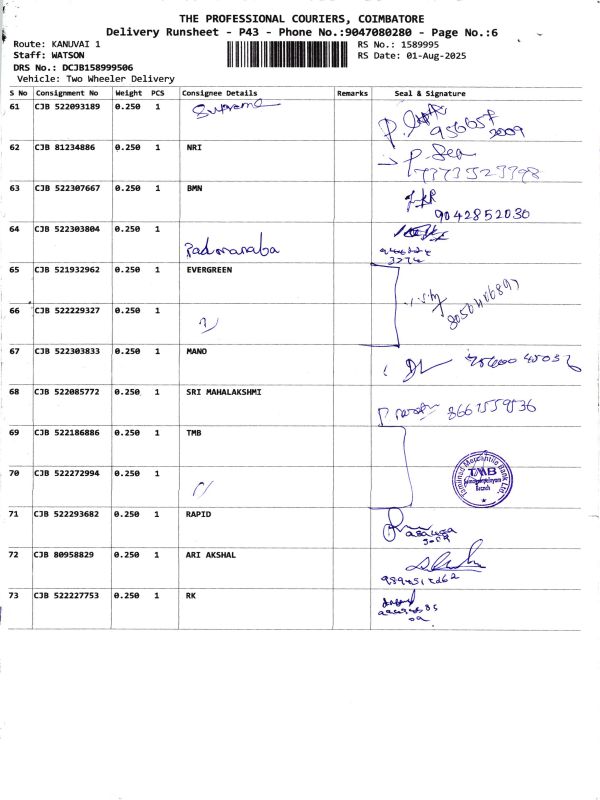 THE PROFESSIONAL COURIERS, COIMBATORE
Delivery Runsheet - P43 - Phone No.:9047080280 - Page No.:6
Route: KANUVAI 1
RS No.: 1589995
Staff: WATSON
RS Date: 01-Aug-2025
DRS No.: DCJB158999506
Vehicle: Two Wheeler Delivery
S No Consignment No Weight PCS Consignee Details Remarks Seal & Signature
61 CJB 522093189 0.250 1 Supreme
P.
95665
2009
62 CJB 81234886 0.250 1 NRI P. Sea
7373523798
63 CJB 522307667 0.250 1 BMN
9042852030
64 CJB 522303804 0.250 1 Padmanaba
3274
65 CJB 521932962 0.250 1 EVERGREEN
66 CJB 522229327 0.250 1 "
8050406897
67 CJB 522303833 0.250 1 MANO
68 CJB 522085772 0.250 1 SRI MAHALAKSHMI
69 CJB 522186886 0.250 1 TMB
70 CJB 522272994 0.250 1 "
Tamilnad Mercantile Bank Ltd.
TMB
Branch
71 CJB 522293682 0.250 1 RAPID
72 CJB 80958829 0.250 1 ARI AKSHAL
73 CJB 522227753 0.250 1 RK